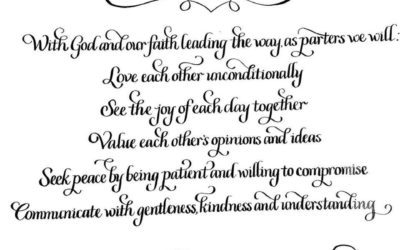 With God and our faith leading the way, as parters we will:
Love each other unconditionally
See the joy of each day together
Value each other's opinions and ideas
Seek peace by being patient and willing to compromise
Communicate with gentleness, kindness and understanding